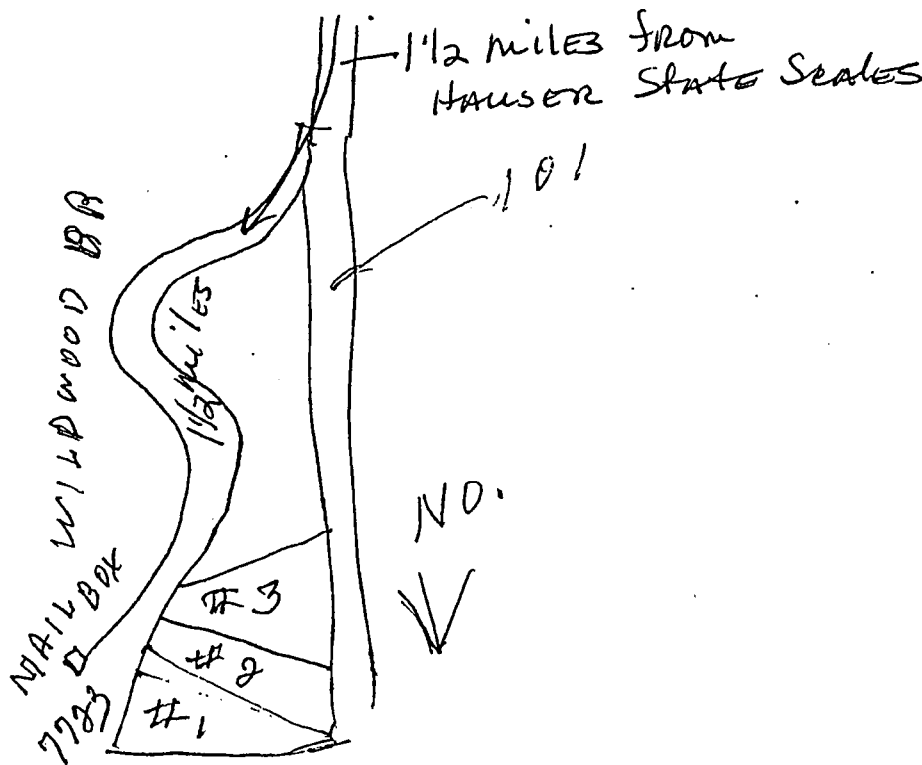 1 1/2 miles from
HAUSER State Scales
101
WILDWOOD DR
1 1/2 miles
NO.
MAIL BOX
7723
# 3
# 2
# 1